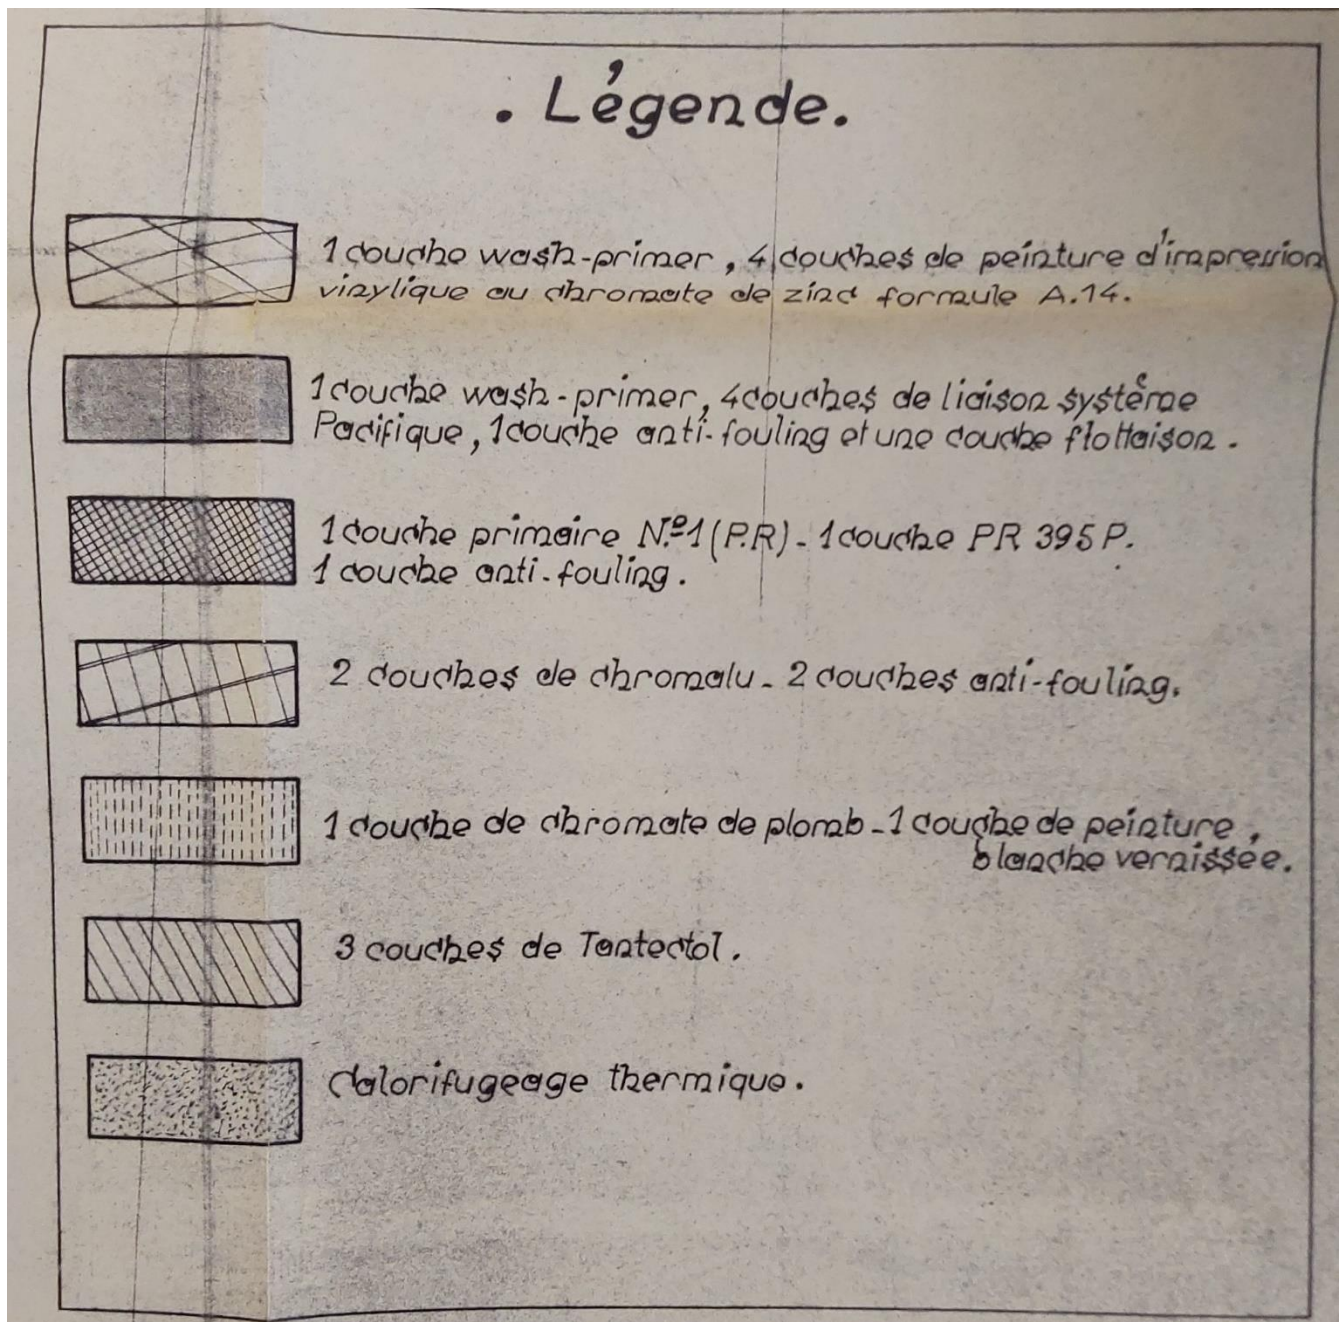 . Légende.
1 couche wash-primer, 4 couches de peinture d'impression
vinylique au chromate de zinc formule A.14.
1 couche wash-primer, 4 couches de liaison système
Pacifique, 1 couche anti-fouling et une couche flottaison.
1 couche primaire N.º1 (P.R) - 1 couche PR 395 P.
1 couche anti-fouling.
2 couches de chromalu - 2 couches anti-fouling.
1 couche de chromate de plomb - 1 couche de peinture,
blanche vernissée.
3 couches de Tentectol.
Calorifugeage thermique.